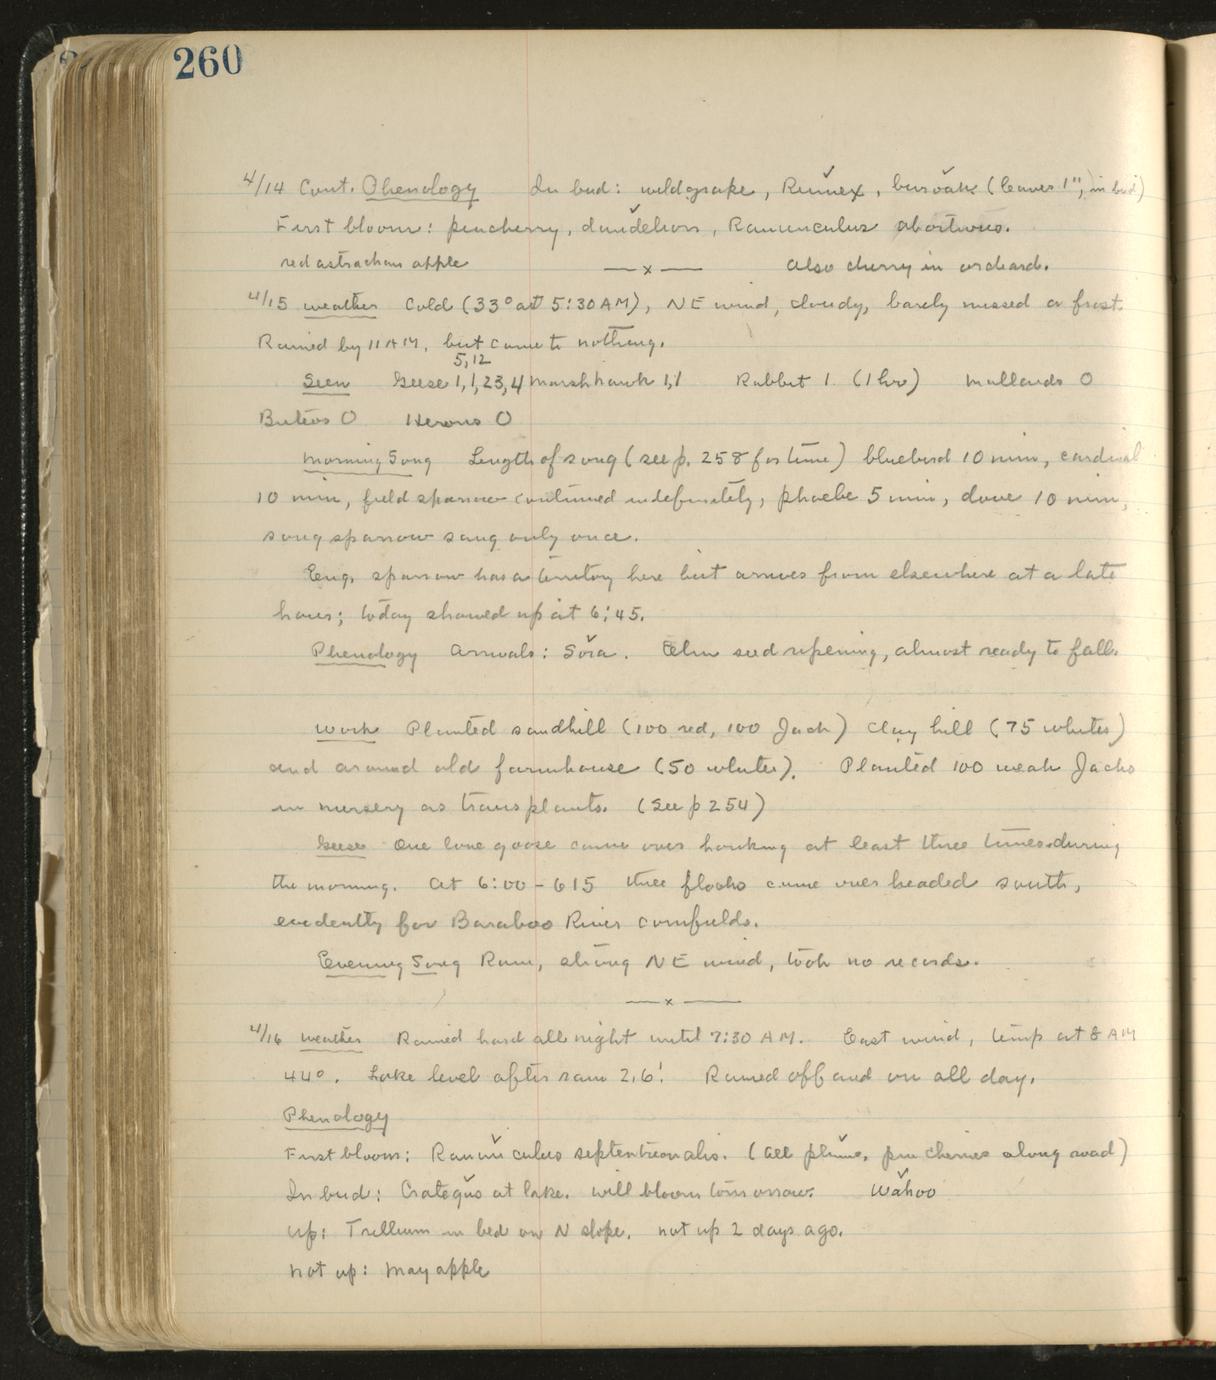 260
4/14 Cont. Phenology In bud: wild grape, Rumex, bur oak (leaves 1", in bud)
First bloom: pincherry, dandelion, Ranunculus abortivus.
red astrachan apple —x— Also cherry in orchard.
4/15 Weather Cold (33° at 5:30 AM), NE wind, cloudy, barely missed a frost.
Rained by 11 AM, but came to nothing.
5, 12
Seen Geese 1, 1, 23, 4 Marsh hawk 1, 1 Rabbit 1 (1 hr) Mallards 0
Buteos 0 Herons 0
Morning Song Length of song (see p. 258 for time) bluebird 10 min, cardinal
10 min, field sparrow continued indefinitely, phoebe 5 min, dove 10 min,
song sparrow sang only once.
Eng. sparrow has a territory here but arrives from elsewhere at a late
hour; today showed up at 6:45.
Phenology Arrivals: Sora. Elm seed ripening, almost ready to fall.
Work Planted sandhill (100 red, 100 Jack) Clay hill (75 whites)
and around old farmhouse (50 whites). Planted 100 weak Jacks
in nursery as transplants. (See p 254)
Geese One lone goose came over honking at least three times during
the morning. At 6:00 - 615 three flocks came over headed south,
evidently for Baraboo River cornfields.
Evening Song Rain, strong NE wind, took no records.
—x—
4/16 Weather Rained hard all night until 7:30 AM. East wind, temp at 8 AM
44°. Lake level after rain 2.6' Rained off and on all day.
Phenology
First bloom: Ranunculus septentrionalis. (All plums, pin cherries along road)
In bud: Crategus at lake. will bloom tomorrow. Wahoo
Up: Trillium in bed on N slope. not up 2 days ago.
Not up: may apple